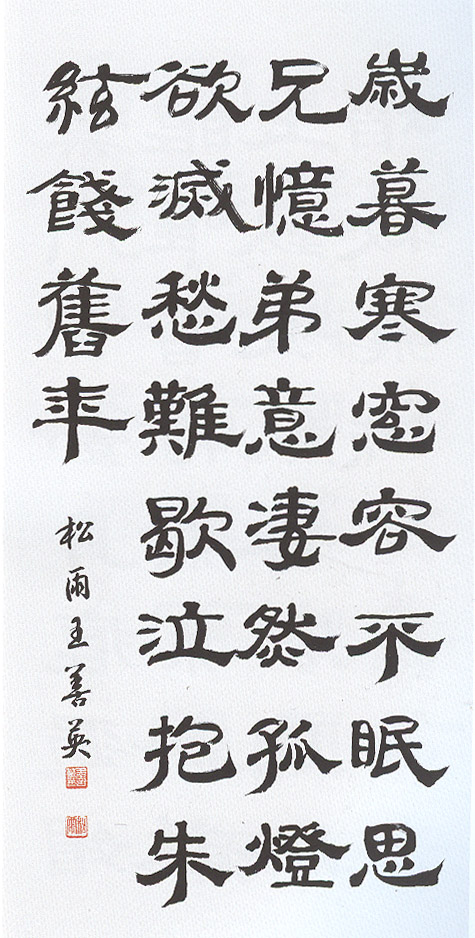 歲暮寒窓客不眠思
兄憶弟意凄然孤燈
欲滅愁難歇泣抱朱
絃餞舊年
松雨王善英